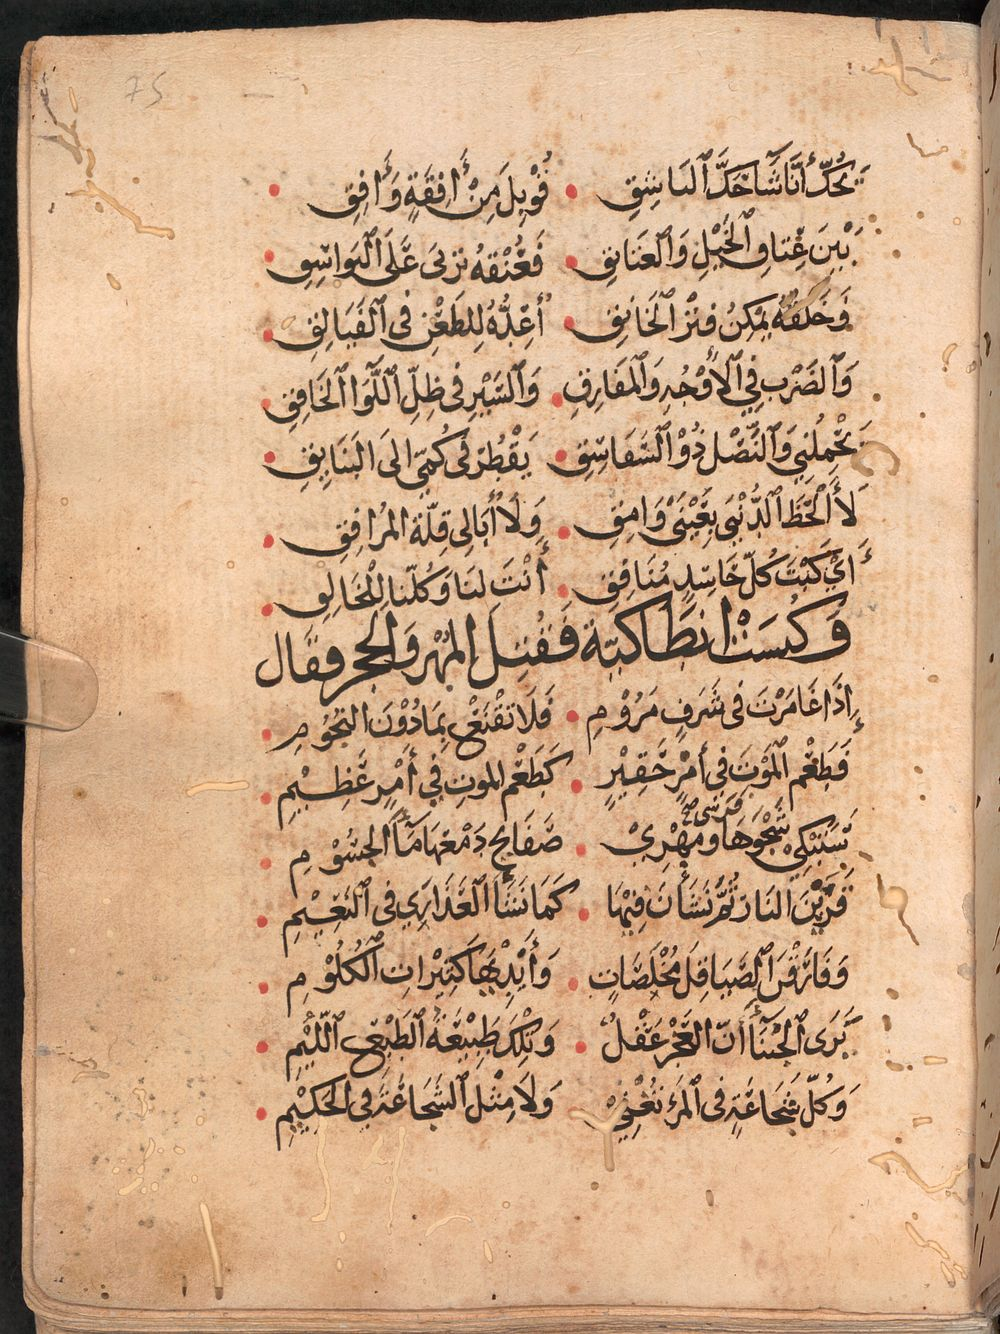 75
يُحَكّ أَنَّا شَآ حَكَّ ٱلبَاشِقِ • قُوْبِلَ مِنْ أَفِقَةٍ وَأَافِقِ •
بَيْنَ عِتَاقِ ٱلخَيْلِ وَٱلعَتَائِقِ • فَعُنْقُهُ تُرْبِي عَلَى ٱلبَوَاسِقِ •
وَحَلْقُهُ يُمْكِنُ فِتْرَ ٱلخَانِقِ • أُعِدُّهُ لِلطَعْنِ فِي ٱلفَيَالِقِ •
وَٱلضَرْبِ فِي ٱلأَوْجُهِ وَٱلمَفَارِقِ • وَٱلسَّيْرِ فِي ظِلِّ ٱللِّوَا ٱلخَافِقِ •
يَحْمِلُنِي وَٱلنَّصْلُ ذُوْ ٱلسَّفَاسِقِ • يَقْطُرُ فِي كُمِّي إِلَى البَنَايِقِ •
لَا أَلْحَظُ ٱلدُّنْيَى بِعَيْنَيْ وَامِقِ • وَلَا أُبَالِي قِلَّةَ المُرَافِقِ •
أَيْ كَبْتَ كُلِّ حَاسِدٍ مُنَافِقِ • أَنْتَ لَنَا وَكُلُّنَا لِلْخَالِقِ •
وَكُبِسَتْ انطَاكيّة فَقُتِلَ المُهْر وَالحِجر فقَال
إِذَا غَامَرْتَ فِي شَرَفٍ مَرُوْمِ • فَلَا تَقْنَعْ بِمَا دُوْنَ النُجُوْمِ •
فَطَعْمُ ٱلمَوْتِ فِي أَمْرٍ حَقِيْرٍ • كَطَعْمِ المَوتِ فِي أَمْرٍ عَظِيْمِ •
سَتَبْكِيْ شَجْوَهَا فَرَسِي صح ومُهْرِيْ • صَفَايِح دَمْعُهَا مَآءُ الجُسُوْمِ •
قَرَيْنَ النَارَ ثُمَّ نَشَأنَ فِيْهَا • كَمَا نَشَأَ العَذَارَي فِي ٱلنَعِيْمِ •
وَفَارَقْنَ ٱلصَّيَاقِلَ مُخْلَصَاتٍ • وَأَيْدِيْهَا كَثِيْرَاتِ ٱلكُلُوْمِ •
يَرَى ٱلجُبَنَآءُ أَنَّ العَجْزَ عَقْلٌ • وَتِلْكَ طَبِيْعَةُ ٱلطَبْعِ ٱللَّئِيْمِ •
وَكُلّ شَجَاعَةٍ فِي ٱلمَرْءِ تُغْنِيْ • وَلَا مِثْلَ ٱلشَّجَاعَةِ فِي الحَكِيْمِ •